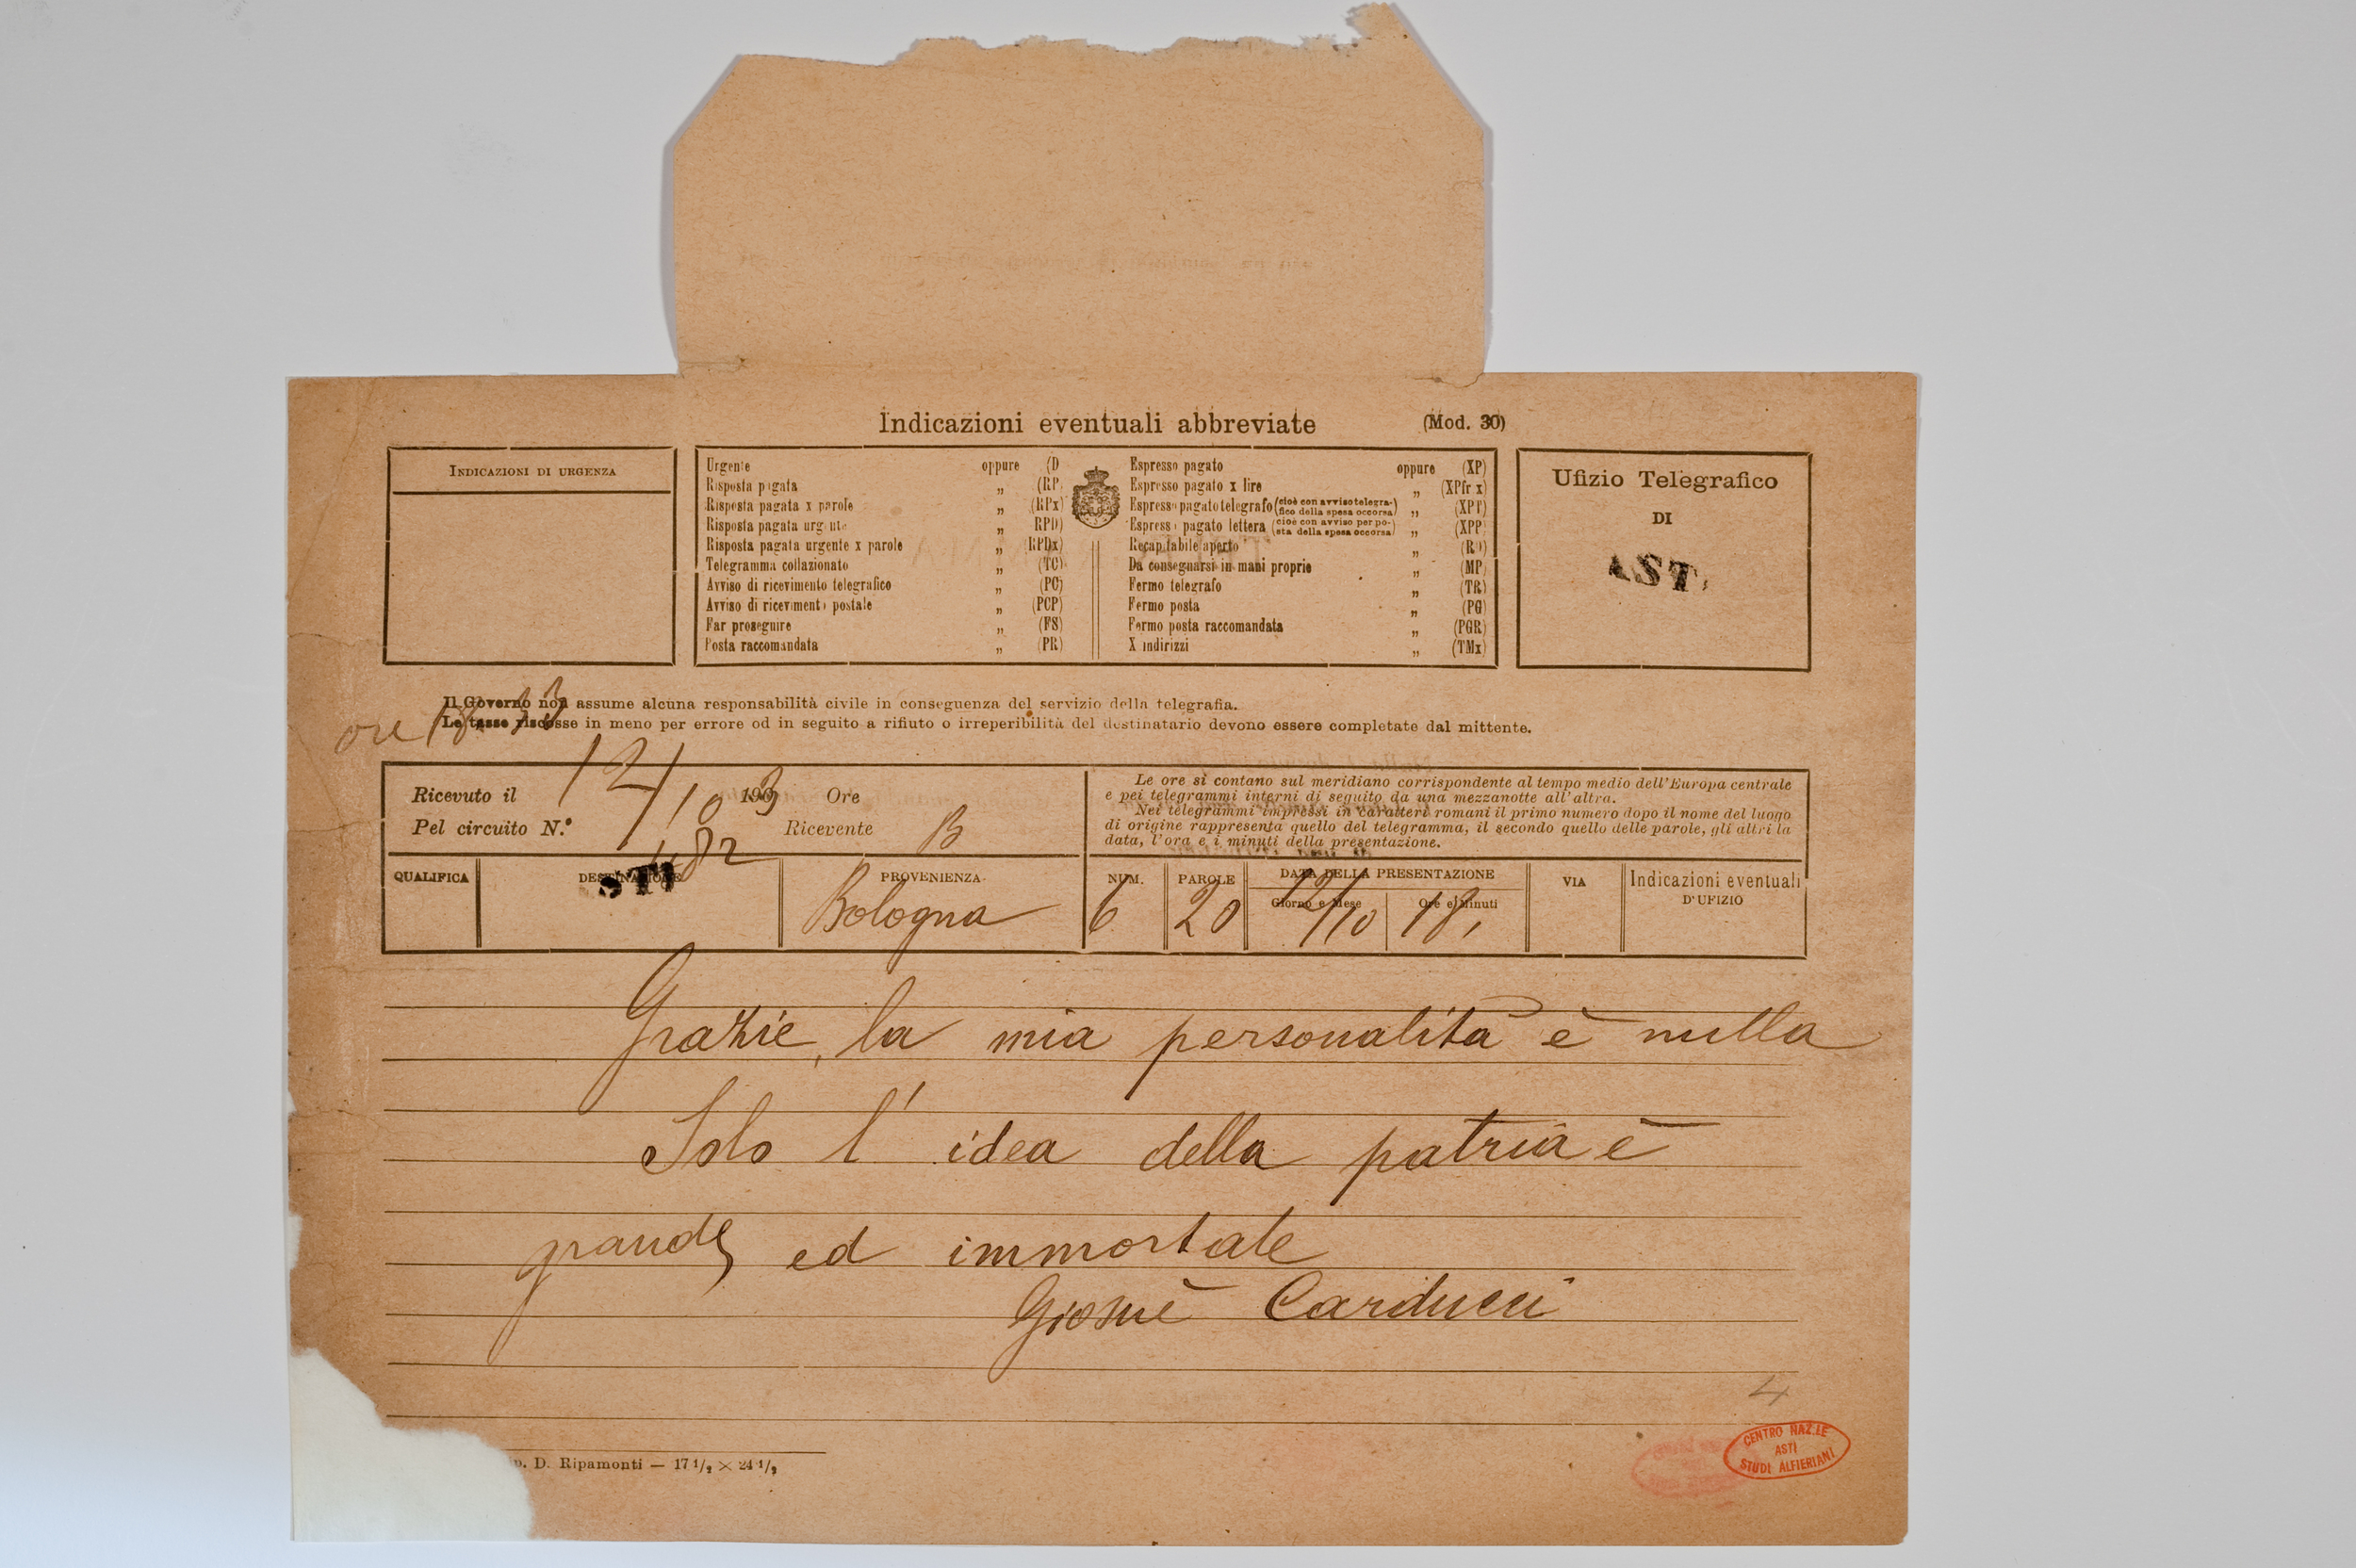 Indicazioni eventuali abbreviate (Mod. 30)
INDICAZIONI DI URGENZA
Urgente oppure (D
Risposta pagata „ (RP
Risposta pagata x parole „ (RPx)
Risposta pagata urgente „ RPD)
Risposta pagata urgente x parole „ (RPDx)
Telegramma collazionato „ (TC)
Avviso di ricevimento telegrafico „ (PC)
Avviso di ricevimento postale „ (PCP)
Far proseguire „ (FS)
Posta raccomandata „ (PR)
Espresso pagato oppure (XP)
Espresso pagato x lire „ (XPfr x)
Espresso pagato telegrafo (cioè con avviso telegra-fico della spesa occorsa) „ (XPT)
Espresso pagato lettera (cioè con avviso per po-sta della spesa occorsa) „ (XPP)
Recapitabile aperto „ (RO)
Da consegnarsi in mani proprie „ (MP)
Fermo telegrafo „ (TR)
Fermo posta „ (PG)
Fermo posta raccomandata „ (PGR)
X indirizzi „ (TMx)
Ufizio Telegrafico
DI
ASTI
Il Governo non assume alcuna responsabilità civile in conseguenza del servizio della telegrafia.
Le tasse riscosse in meno per errore od in seguito a rifiuto o irreperibilità del destinatario devono essere completate dal mittente.
ore
Ricevuto il 12/10 1903 Ore
Pel circuito N.º 482 Ricevente B
Le ore si contano sul meridiano corrispondente al tempo medio dell'Europa centrale
e pei telegrammi interni di seguito da una mezzanotte all'altra.
Nei telegrammi impressi in caratteri romani il primo numero dopo il nome del luogo
di origine rappresenta quello del telegramma, il secondo quello delle parole, gli altri la
data, l'ora e i minuti della presentazione.
QUALIFICA DESTINAZIONE PROVENIENZA NUM. PAROLE DATA DELLA PRESENTAZIONE VIA Indicazioni eventuali
Giorno e Mese Ore e Minuti D'UFIZIO
STI Bologna 6 20 12/10 18,
Grazie, la mia personalità è nulla
Solo l' idea della patria è
grande ed immortale
Giosuè Carducci
4
p. D. Ripamonti — 17 1/2 × 24 1/2
CENTRO NAZ.LE
ASTI
STUDI ALFIERIANI